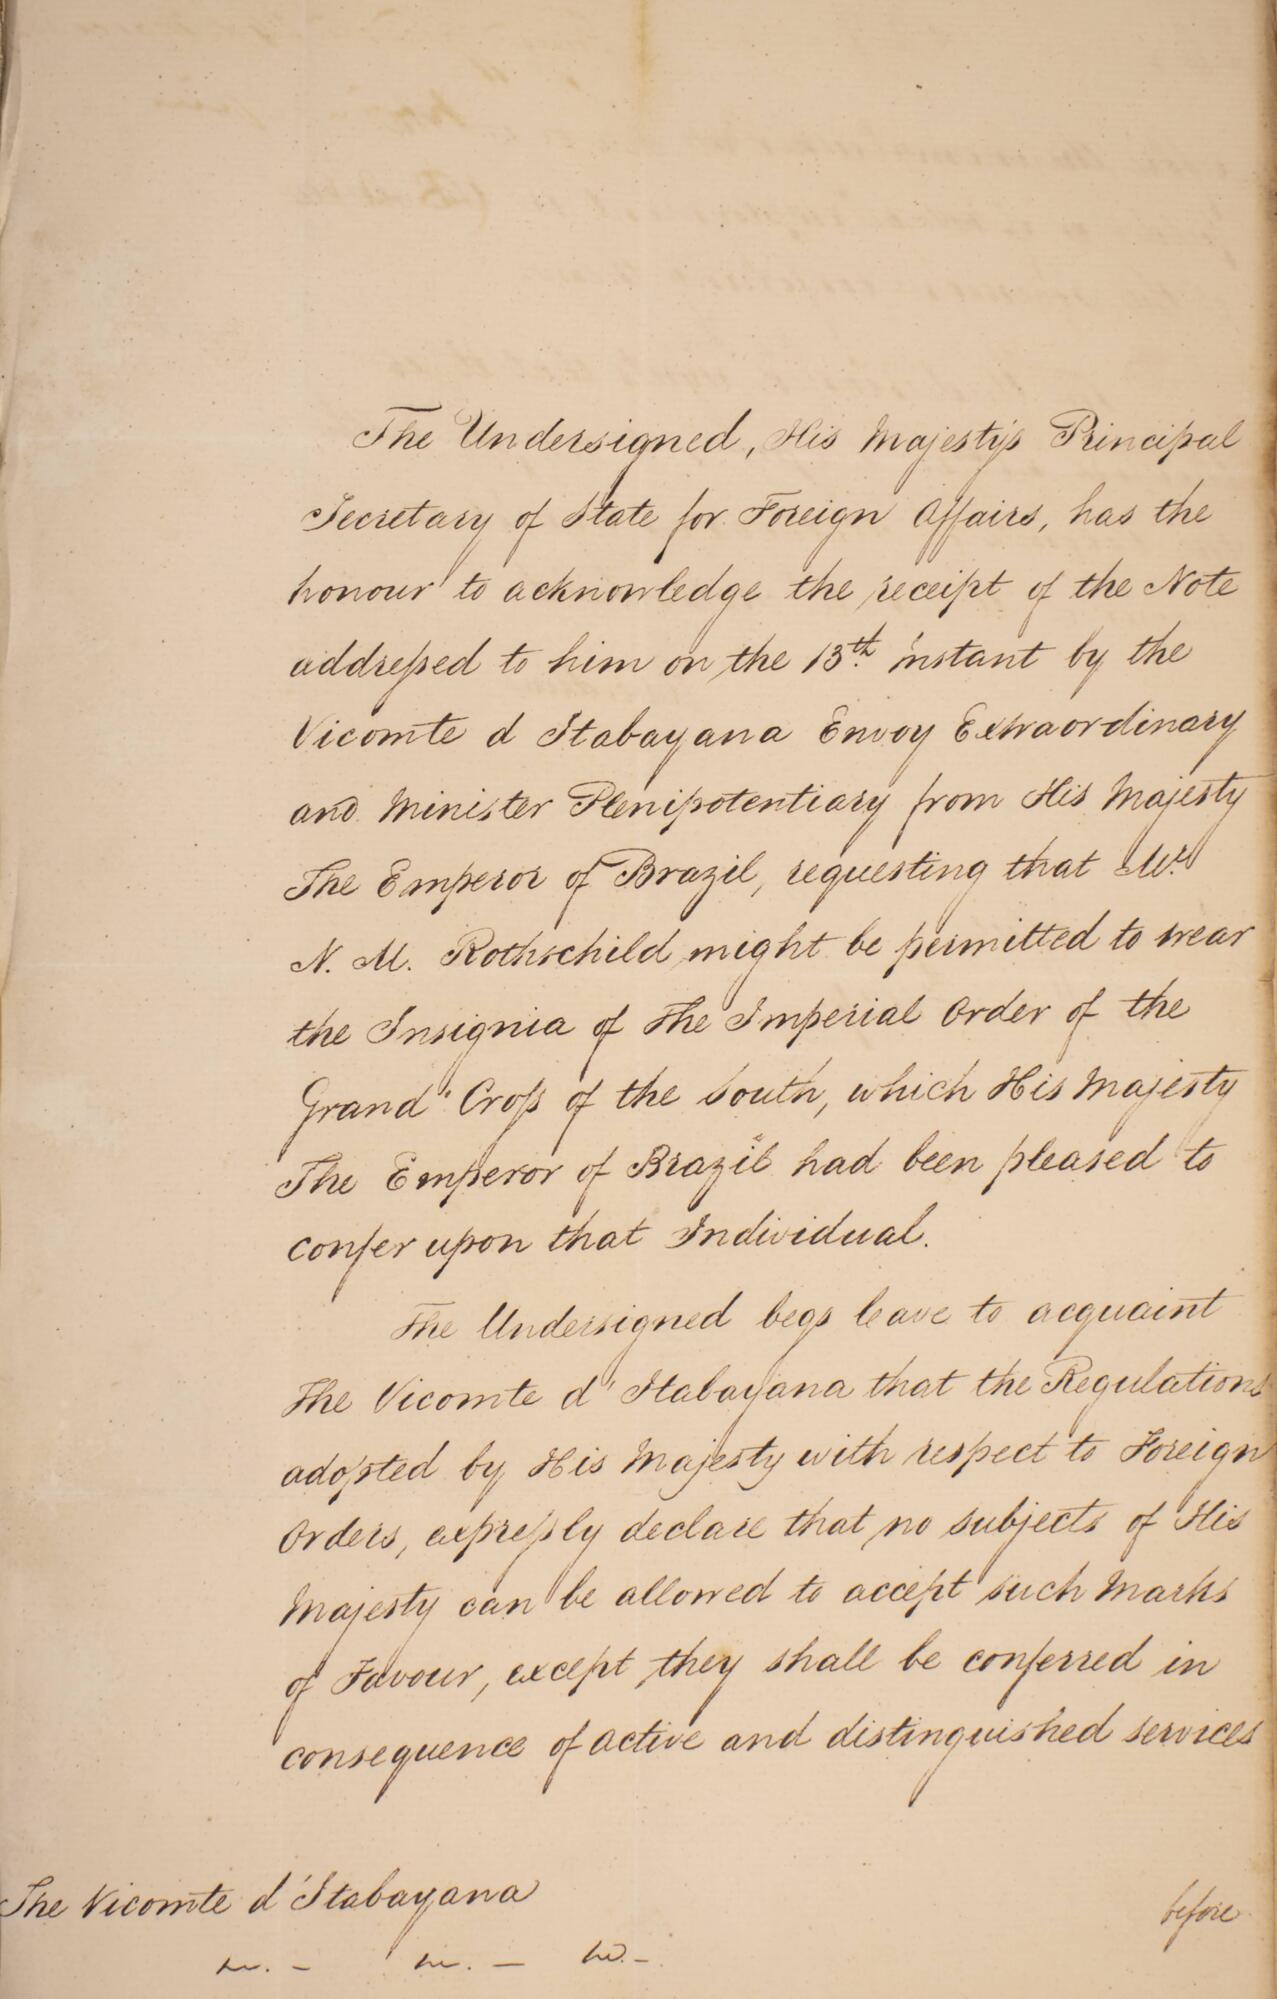 The Undersigned, His Majesty's Principal
Secretary of State for Foreign Affairs, has the
honour to acknowledge the receipt of the Note
addressed to him on the 13th. instant by the
Vicomte d Itabayana Envoy Extraordinary
and Minister Plenipotentiary from His Majesty
The Emperor of Brazil, requesting that Mr.
N. M. Rothschild might be permitted to wear
the Insignia of The Imperial Order of the
Grand Cross of the South, which His Majesty
The Emperor of Brazil had been pleased to
confer upon that Individual.
The Undersigned begs leave to acquaint
The Vicomte d'Itabayana that the Regulations
adopted by His Majesty with respect to Foreign
Orders, expressly declare that no subjects of His
Majesty can be allowed to accept such Marks
of Favour, except they shall be conferred in
consequence of active and distinguished services
The Vicomte d'Itabayana
before